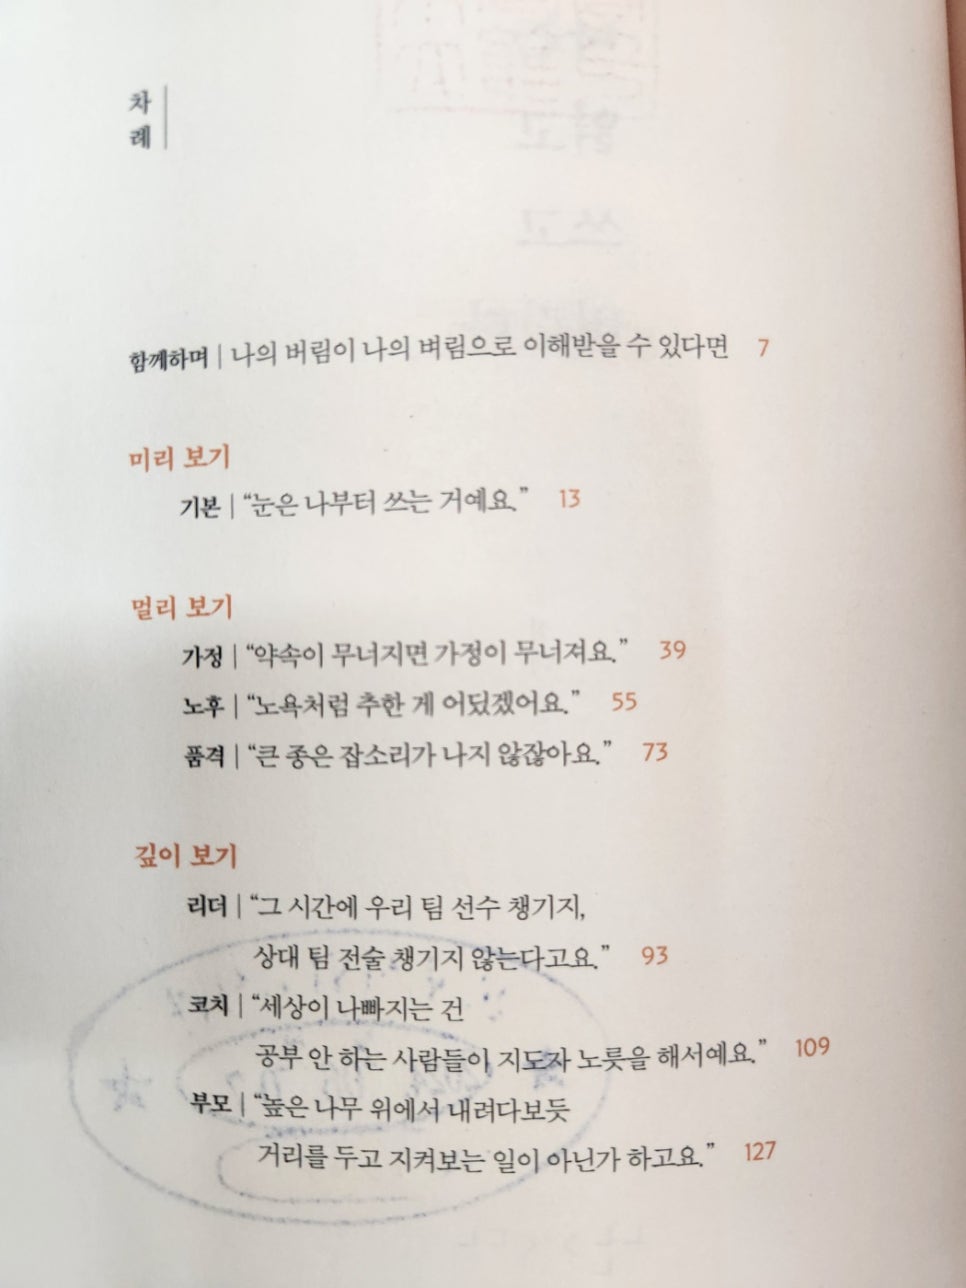 차
례
함께하며 | 나의 버림이 나의 벼림으로 이해받을 수 있다면 7
미리 보기
기본 | “눈은 나부터 쓰는 거예요.” 13
멀리 보기
가정 | “약속이 무너지면 가정이 무너져요.” 39
노후 | “노욕처럼 추한 게 어딨겠어요.” 55
품격 | “큰 종은 잡소리가 나지 않잖아요.” 73
깊이 보기
리더 | “그 시간에 우리 팀 선수 챙기지,
상대 팀 전술 챙기지 않는다고요.” 93
코치 | “세상이 나빠지는 건
공부 안 하는 사람들이 지도자 노릇을 해서예요.” 109
부모 | “높은 나무 위에서 내려다보듯
거리를 두고 지켜보는 일이 아닌가 하고요.” 127